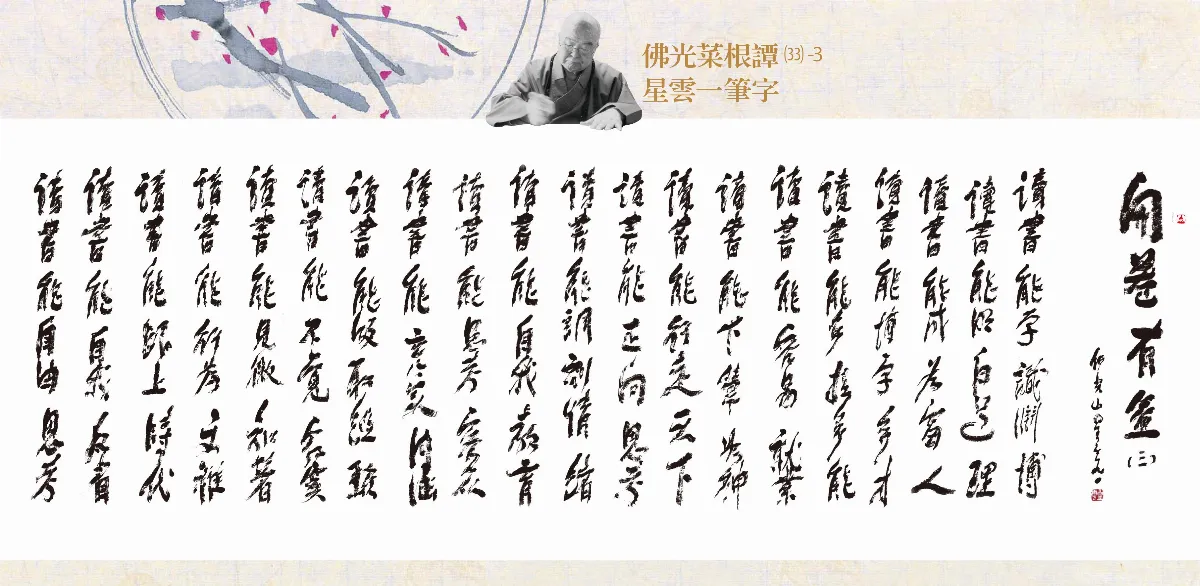 佛光菜根譚(33)-3
星雲一筆字
開卷有益(三)
佛光山星雲
讀書能學識淵博
讀書能明白道理
讀書能成為富人
讀書能博學多才
讀書能多技多能
讀書能容易就業
讀書能下筆如神
讀書能走天下
讀書能正向思考
讀書能調劑情緒
讀書能自我教育
讀書能思考
讀書能言
讀書能吸取經驗
讀書能不覺
讀書能見微知著
讀書能行為文雅
讀書能跟上時代
讀書能自我反省
讀書能自由思考